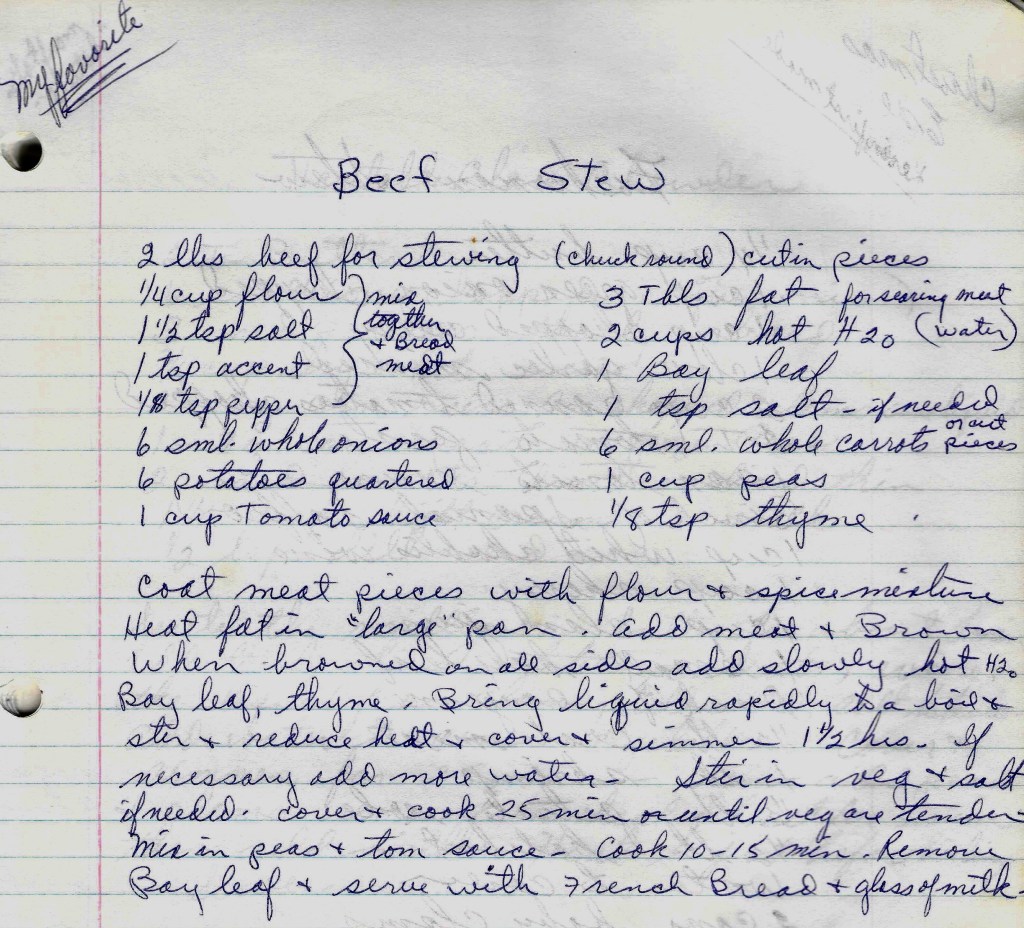 My favorite
Beef Stew
2 lbs beef for stewing (chuck round) cut in pieces
1/4 cup flour
1 1/2 tsp salt
1 tsp accent
1/8 tsp pepper
mix
together
+ Bread
meat
6 sml. whole onions
6 potatoes quartered
1 cup Tomato sauce
3 Tbls fat for searing meat
2 cups hot H2O (water)
1 Bay leaf
1 tsp salt - if needed
6 sml. whole carrots or cut pieces
1 cup peas
1/8 tsp thyme
Coat meat pieces with flour + spice mixture
Heat fat in "large" pan. add meat + Brown
When browned on all sides add slowly hot H2O
Bay leaf, thyme. Bring liquid rapidly to a boil +
stir + reduce heat + cover + simmer 1 1/2 hrs. If
necessary add more water - Stir in veg + salt
if needed. cover + cook 25 min or until veg are tender -
Mix in peas + tom sauce - Cook 10-15 min. Remove
Bay leaf + serve with French Bread + glass of milk -